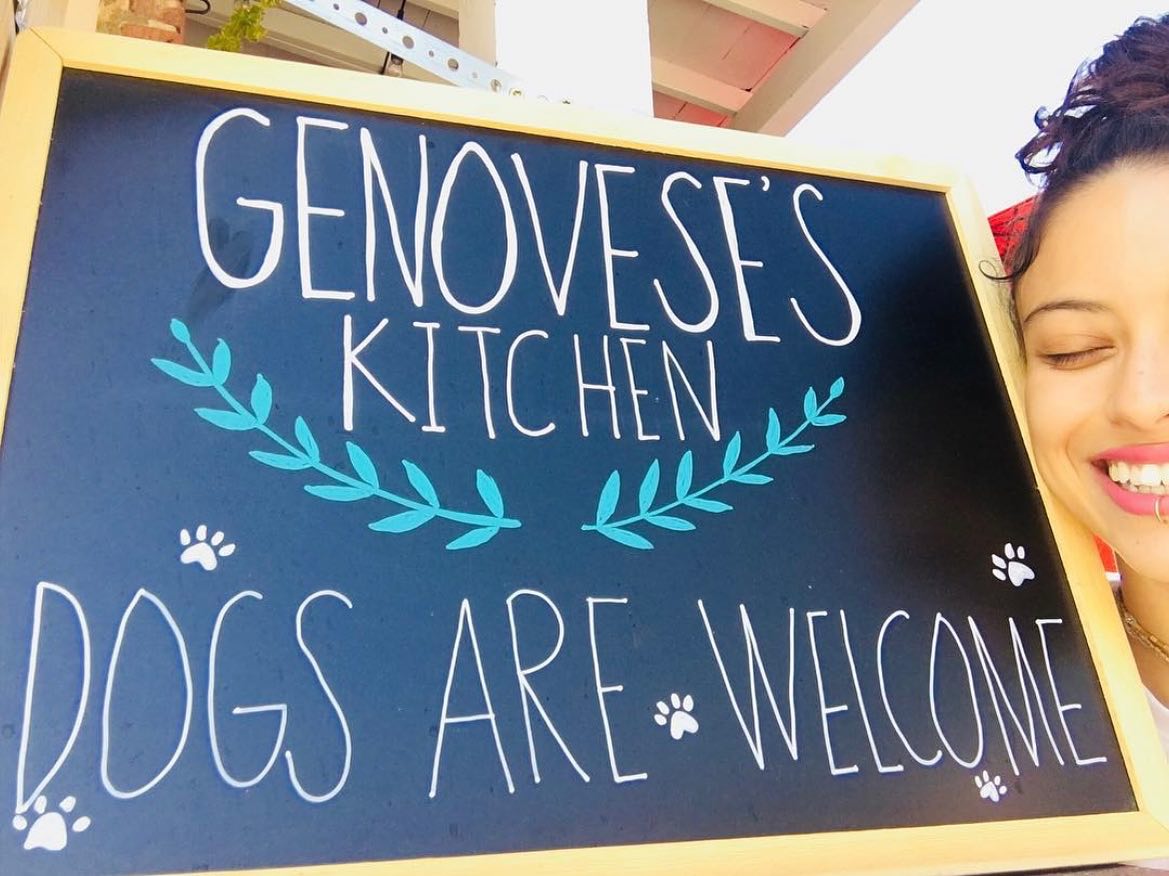 GENOVESE'S
KITCHEN
DOGS ARE WELCOME